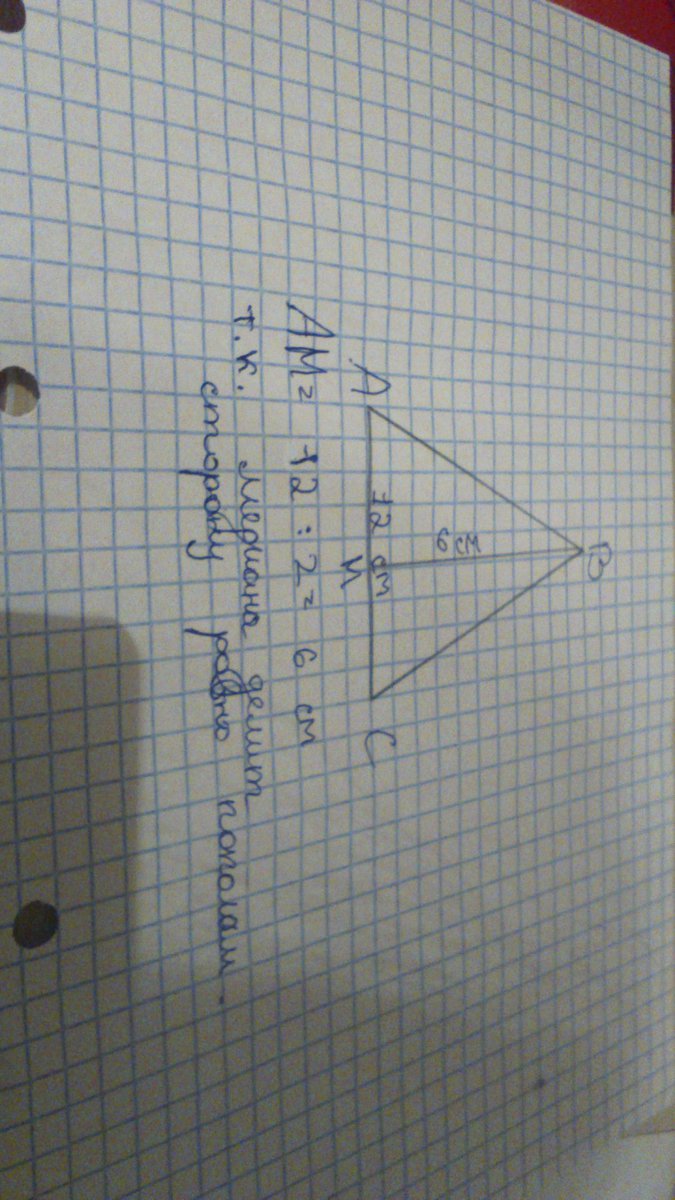 B
6 см
A
12 см
C
М
АМ = 12 : 2 = 6 см
т.к. медиана делит
сторону ровно пополам.